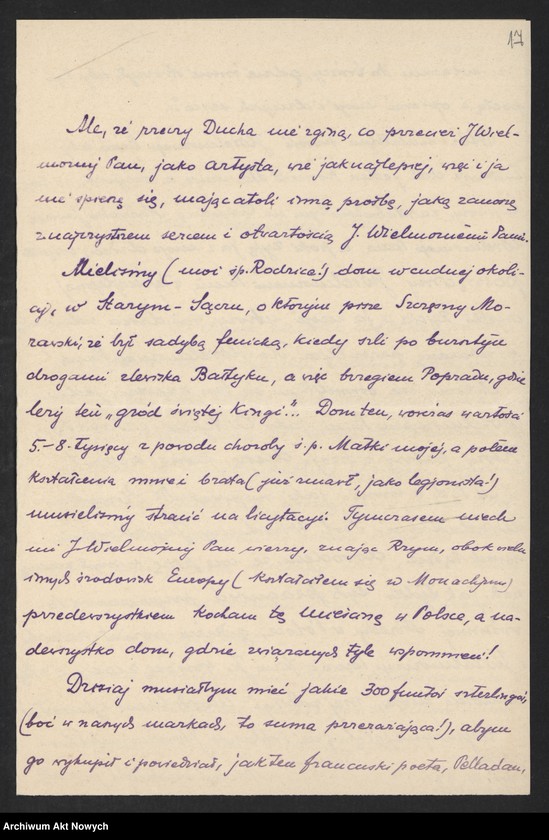 17
Ale, że rzeczy Ducha nie zginą, co przecież J Wiel-
możny Pan, jako artysta, wie jaknajlepiej, więc i ja
nie spieszę się, mając atoli inną prośbę, jaką zanoszę
z najczystszem sercem i otwartością J. Wielmożnemu Panu.
Mieliśmy (moi śp. Rodzice!) dom w cudnej okoli-
cy, w Starym-Sączu, o którym pisze Szczęsny Mo-
rawski, że był sadybą fenicką, kiedy szli po bursztyn
drogami zlewiska Bałtyku, a więc brzegiem Popradu, gdzie
leży ten "gród świętej Kingi"... Dom ten, wówczas wartości
5.-8. tysięcy z powodu choroby ś.p. Matki mojej, a potem
kształcenia mnie i brata (już zmarł, jako legjonista!)
musieliśmy stracić na licytacyi. Tymczasem niech
mi J Wielmożny Pan wierzy, znając Rzym, obok wielu
innych środowisk Europy (kształciłem się w Monachjum)
przedewszystkiem kocham tę mieścinę w Polsce, a na-
dewszystko dom, gdzie związanych tyle wspomnień!
Dzisiaj musiałbym mieć jakie 300 funtów szterlingów,
(boć w naszych markach, to suma przerażająca!), abym
go wykupił i powiedział, jak ten francuski poeta, Pelladan,
Archiwum Akt Nowych